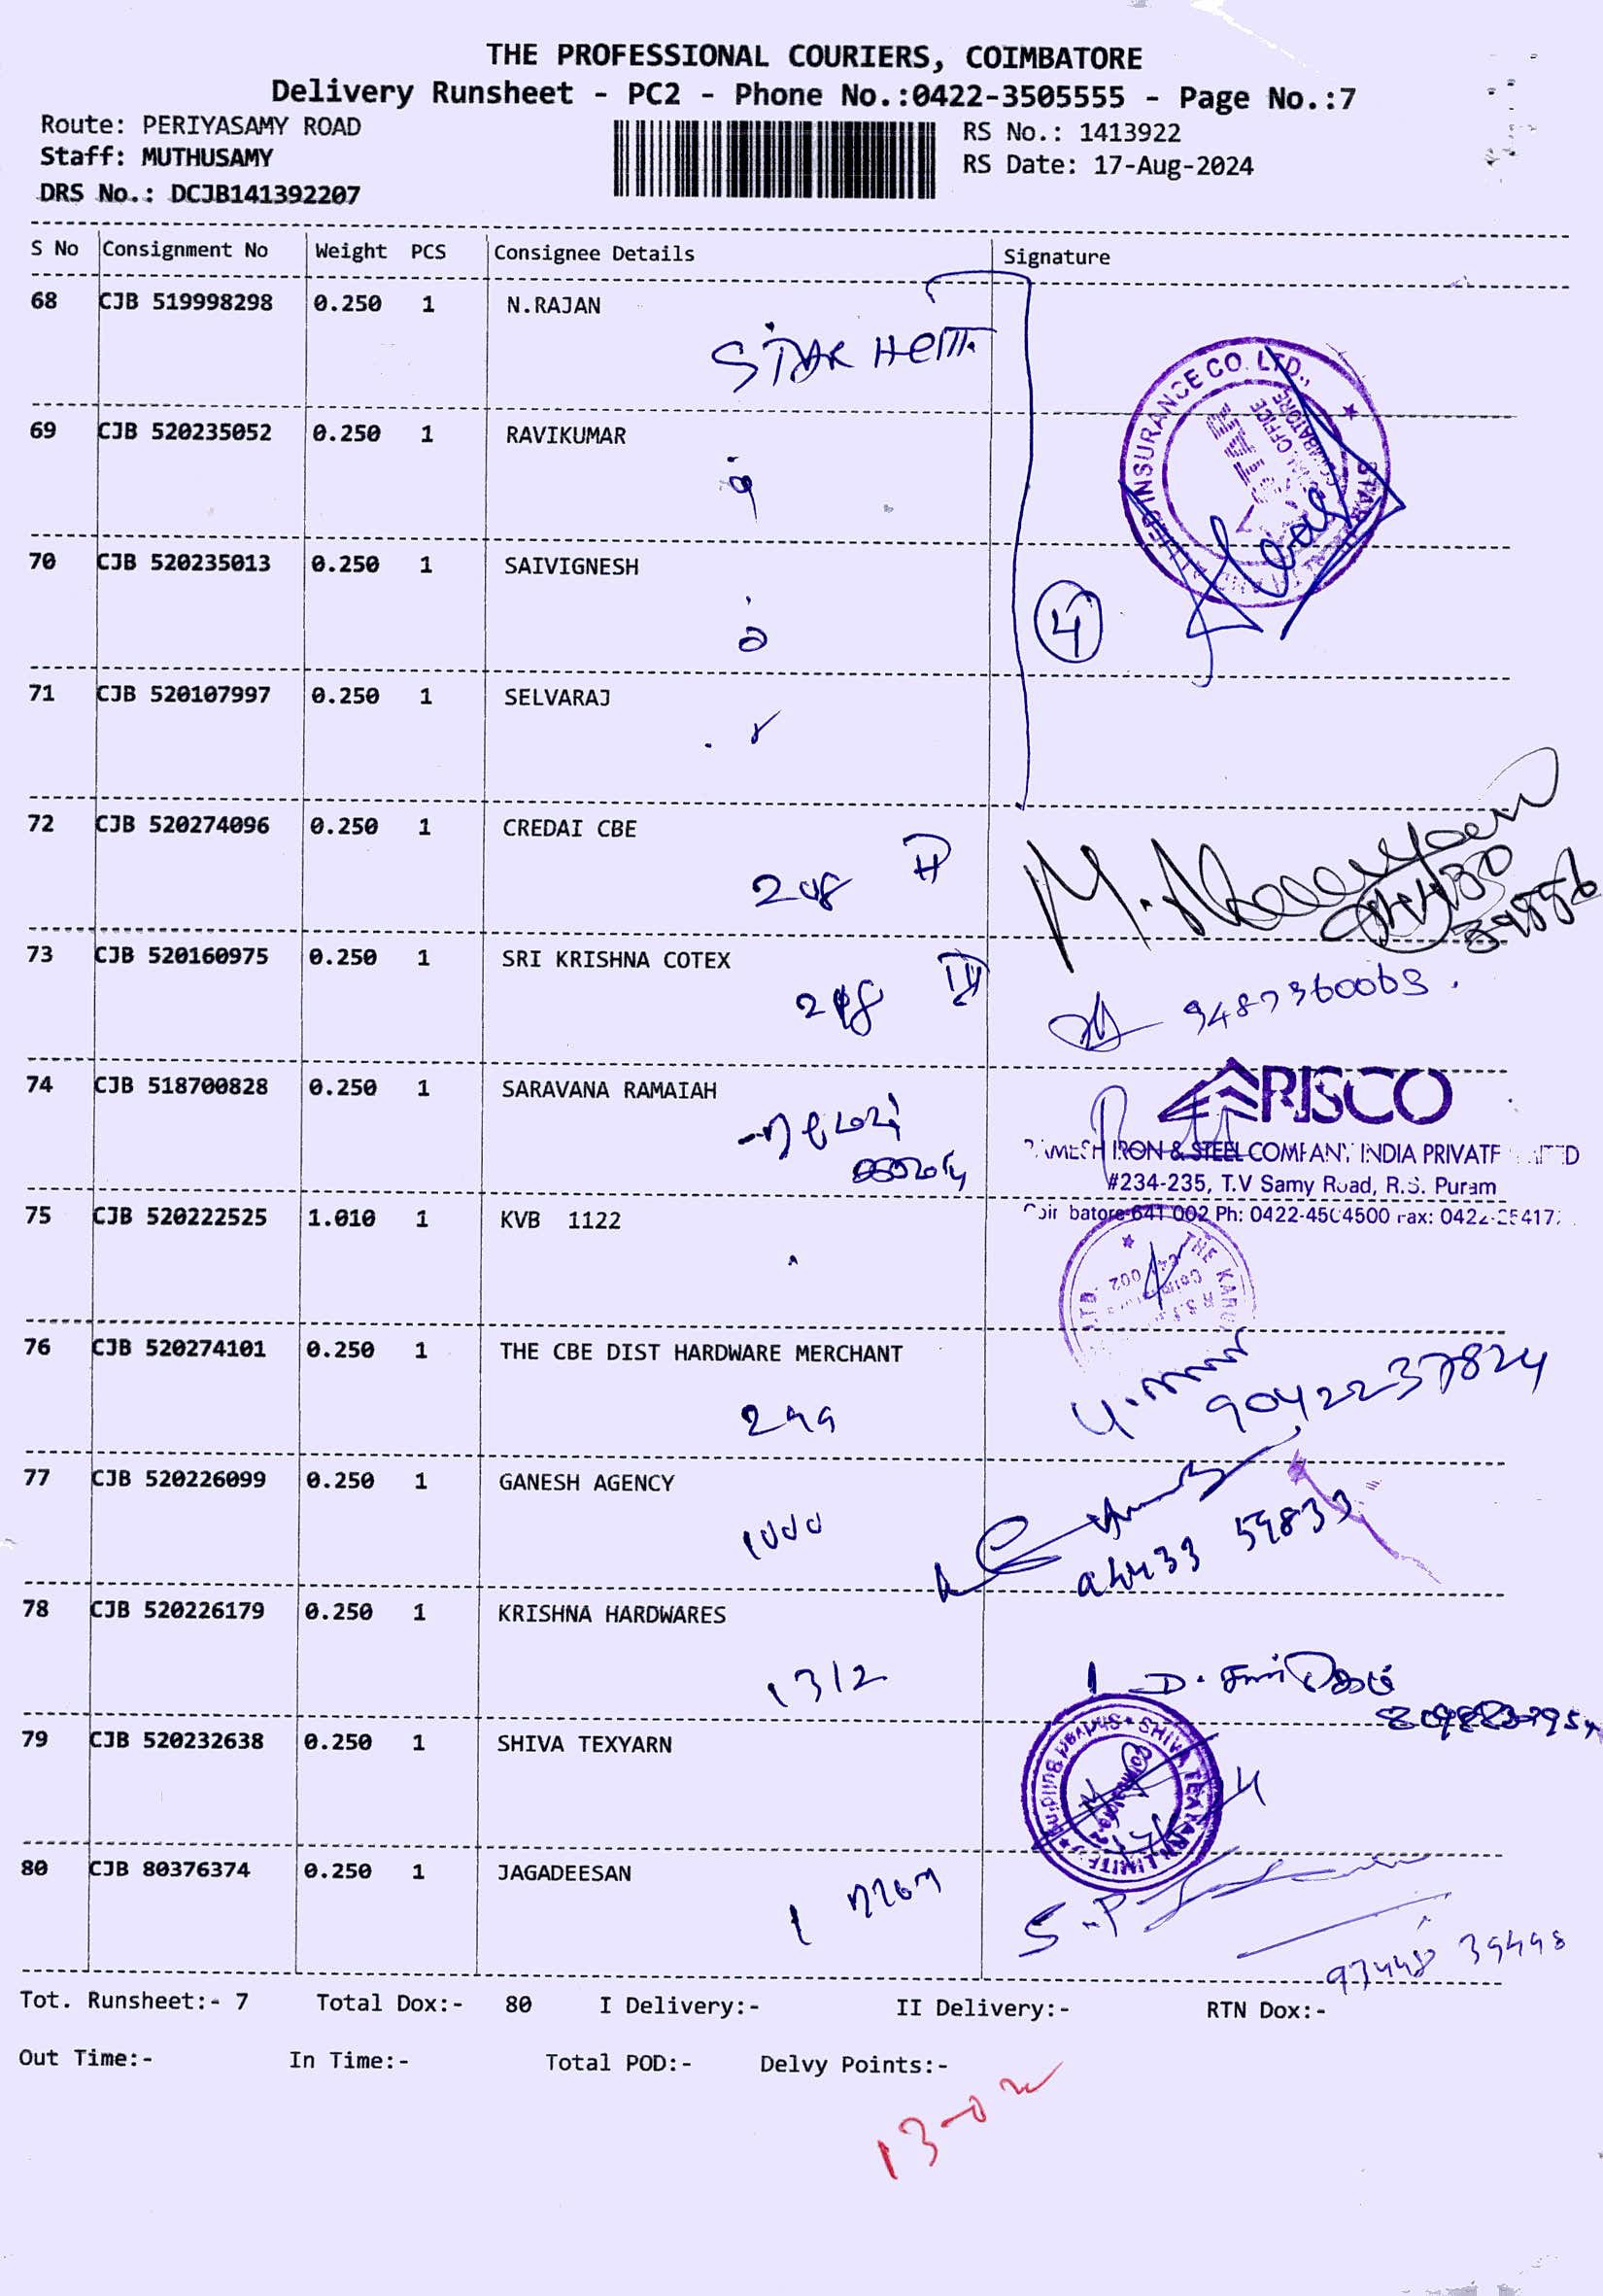 THE PROFESSIONAL COURIERS, COIMBATORE
Delivery Runsheet - PC2 - Phone No.:0422-3505555 - Page No.:7
Route: PERIYASAMY ROAD
RS No.: 1413922
Staff: MUTHUSAMY
RS Date: 17-Aug-2024
DRS No.: DCJB141392207
S No Consignment No Weight PCS Consignee Details Signature
68 CJB 519998298 0.250 1 N.RAJAN
STAR
INSURANCE CO. LTD.,
69 CJB 520235052 0.250 1 RAVIKUMAR
70 CJB 520235013 0.250 1 SAIVIGNESH
4
71 CJB 520107997 0.250 1 SELVARAJ
72 CJB 520274096 0.250 1 CREDAI CBE
208
73 CJB 520160975 0.250 1 SRI KRISHNA COTEX
208
9487360063.
74 CJB 518700828 0.250 1 SARAVANA RAMAIAH
RISCO
IRON & STEEL COMPANY INDIA PRIVATE
#234-235, T.V Samy Road, R.S. Puram
641 002 Ph: 0422-4504500
75 CJB 520222525 1.010 1 KVB 1122
76 CJB 520274101 0.250 1 THE CBE DIST HARDWARE MERCHANT
299
9042237824
77 CJB 520226099 0.250 1 GANESH AGENCY
1000
78 CJB 520226179 0.250 1 KRISHNA HARDWARES
1312
79 CJB 520232638 0.250 1 SHIVA TEXYARN
SHIVA TEXYARN LIMITED
80 CJB 80376374 0.250 1 JAGADEESAN
S.P
Tot. Runsheet:- 7 Total Dox:- 80 I Delivery:- II Delivery:- RTN Dox:-
Out Time:- In Time:- Total POD:- Delvy Points:-